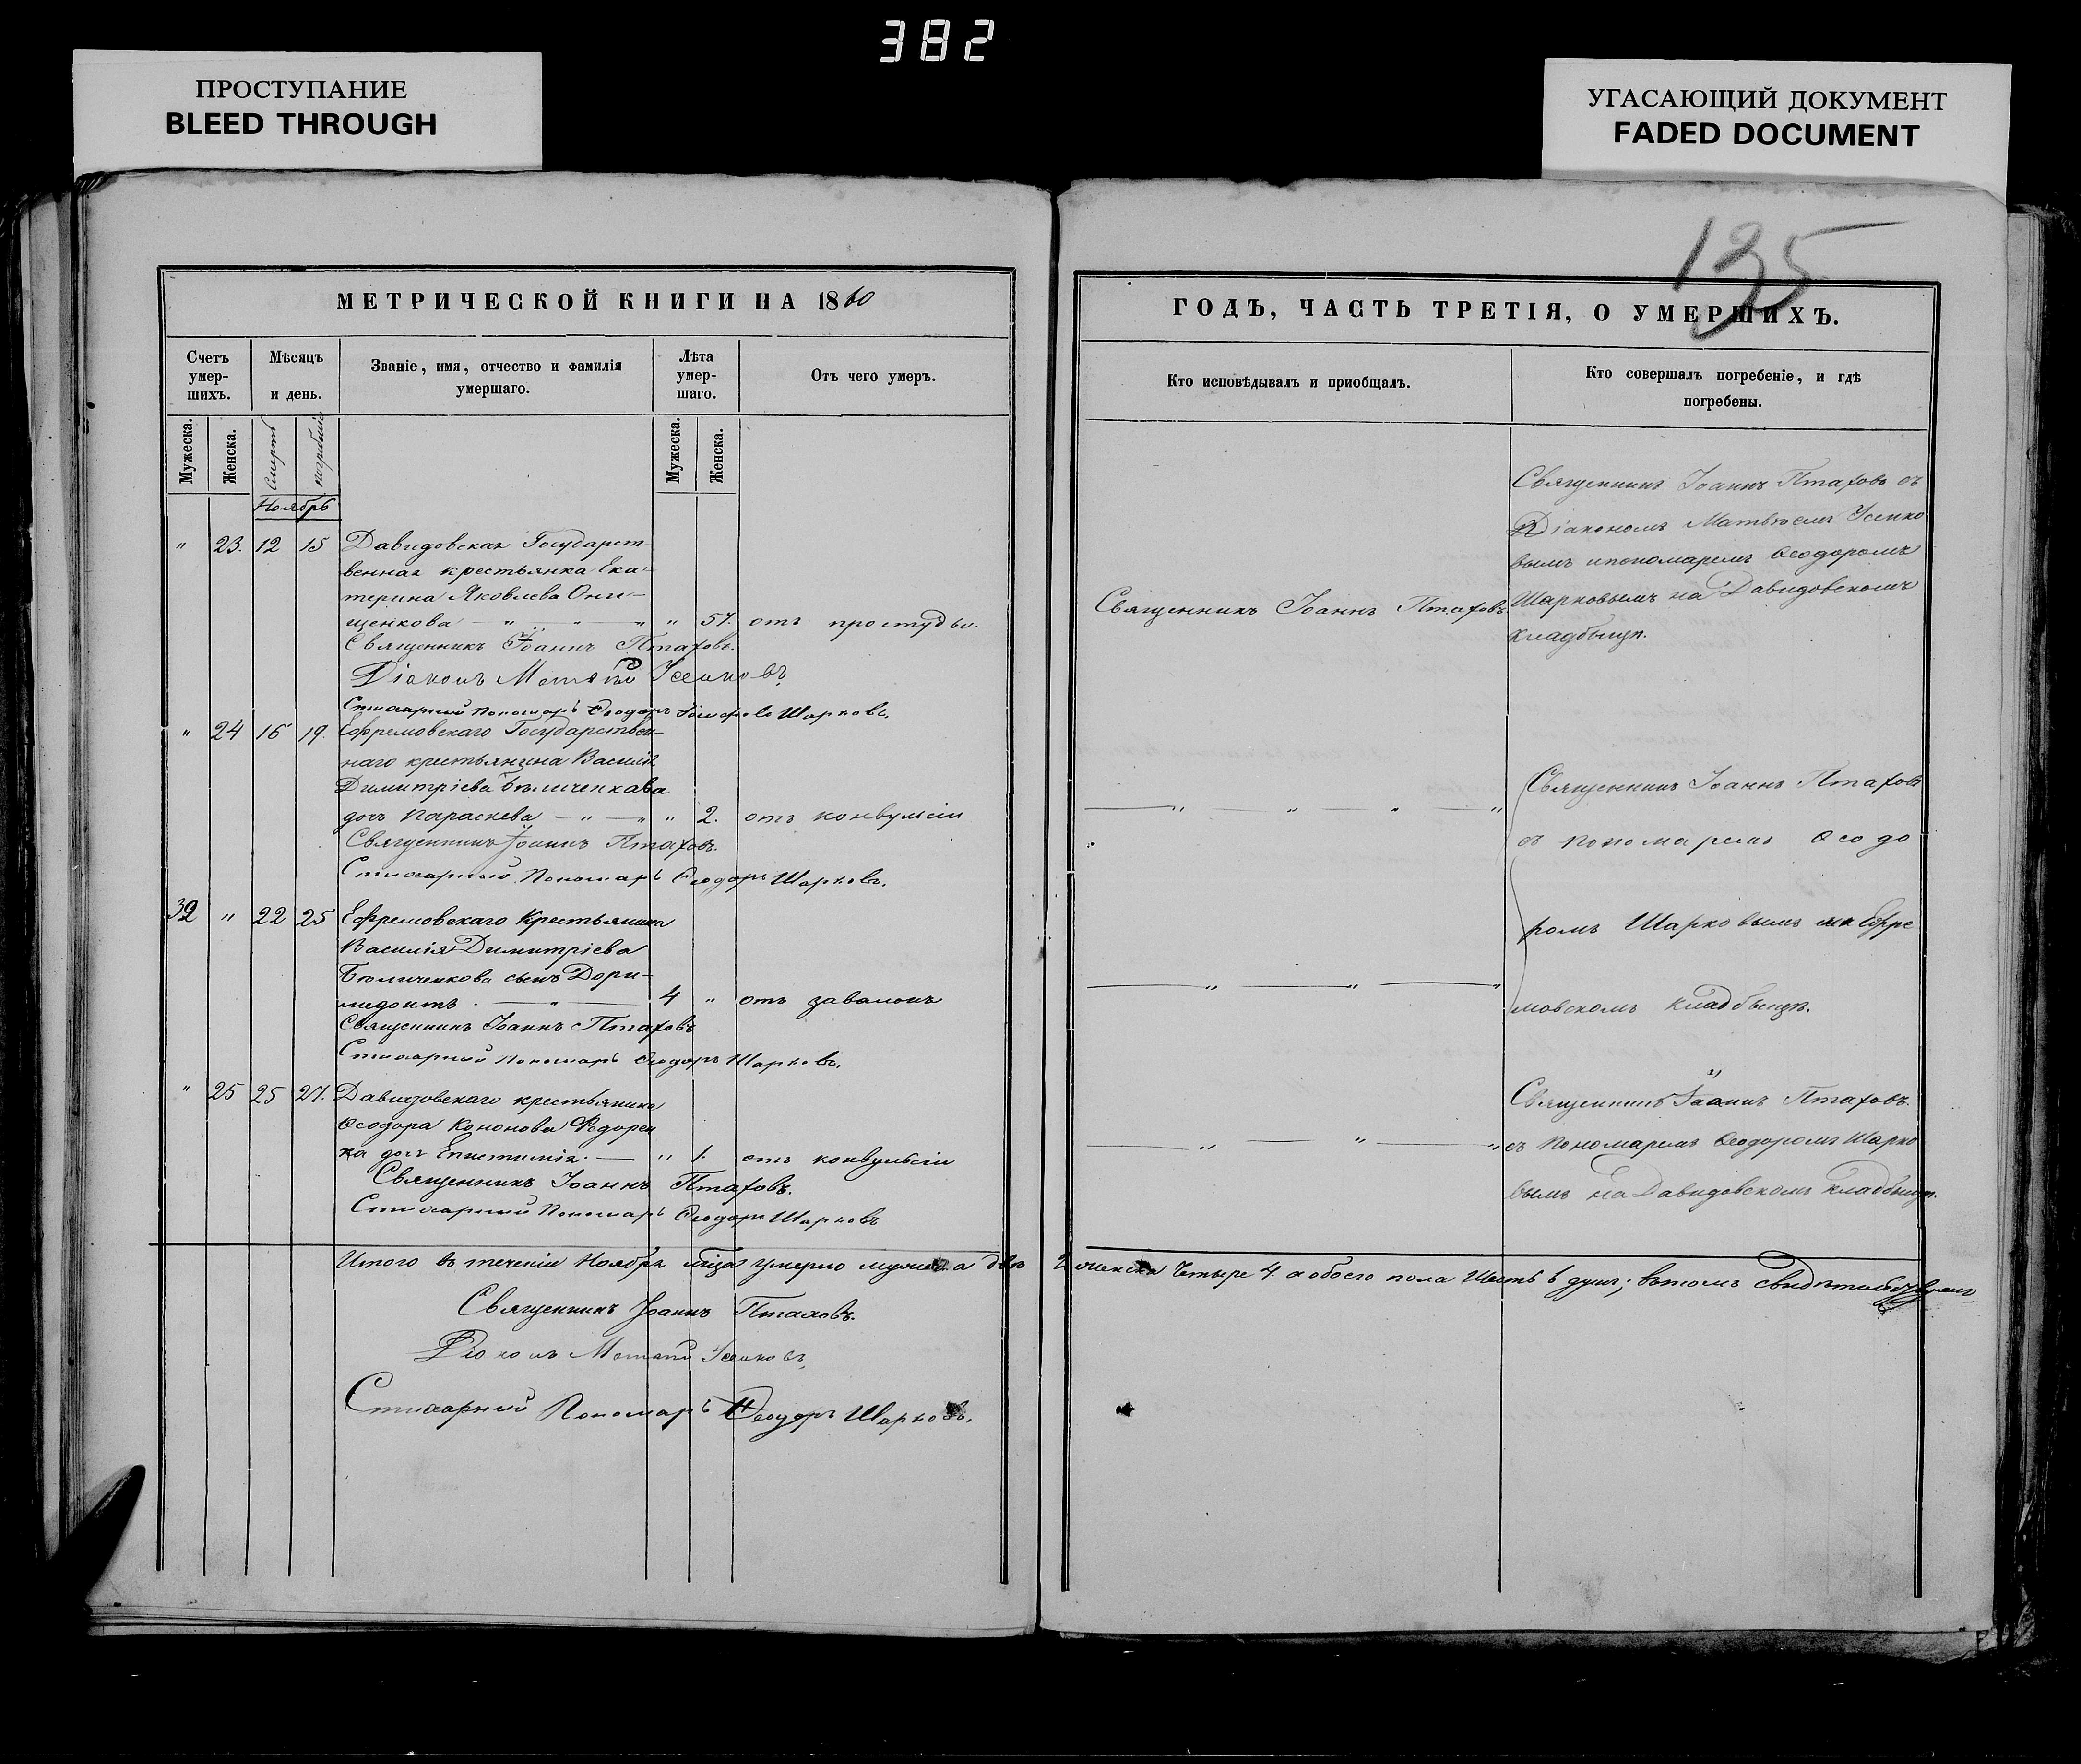 382
ПРОСТУПАНИЕ
BLEED THROUGH
УГАСАЮЩИЙ ДОКУМЕНТ
FADED DOCUMENT
135
МЕТРИЧЕСКОЙ КНИГИ НА 1860
Счетъ умер-шихъ.
Мѣсяцъ и день.
Званіе, имя, отчество и фамилія умершаго.
Лѣта умер-шаго.
Отъ чего умеръ.
Мужеска.
Женска.
Смерть
погребенія
Мужеска.
Женска.
Ноябрь
" 23. 12 15 Давидовская Государст
венная крестьянка Ека-
терина Яковлева Они-
щенкова " " " " 57. отъ простуды.
Священникъ Іоаннъ Птаховъ.
Діаконъ Матвѣй Усенковъ
Стихарный Пономарь Ѳеодоръ Шарковъ.
" 24 16 19. Ефремовскаго Государствен-
наго крестьянина Василія
Димитріева Бѣличенкова
дочь Параскева " " " 2. отъ конвульсіи
Священникъ Іоаннъ Птаховъ.
Стихарный Пономарь Ѳеодоръ Шарковъ.
32 " 22 25 Ефремовскаго Крестьянина
Василія Димитріева
Бѣличенкова сынъ Дори-
медонтъ " 4 " отъ заваловъ
Священникъ Іоаннъ Птаховъ
Стихарный Пономарь Ѳеодоръ Шарковъ.
" 25 25 27. Давидовскаго крестьянина
Ѳеодора Кононова Федорен
ка дочь Епистимія. " 1. отъ конвульсіи
Священникъ Іоаннъ Птаховъ.
Стихарный Пономарь Ѳеодоръ Шарковъ
Итого въ теченіи Ноября мца умерло мужеска два
Священникъ Іоаннъ Птаховъ.
Діаконъ Матвѣй Усенковъ,
Стихарный Пономарь Ѳеодоръ Шарковъ.
ГОДЪ, ЧАСТЬ ТРЕТІЯ, О УМЕРШИХЪ.
Кто исповѣдывалъ и пріобщалъ.
Кто совершалъ погребеніе, и гдѣ погребены.
Священникъ Іоаннъ Птаховъ
Священникъ Іоаннъ Птаховъ съ
Діакономъ Матвѣемъ Усенко
вымъ и пономаремъ Ѳеодоромъ
Шарковымъ на Давидовскомъ
кладбищѣ.
Священникъ Іоаннъ Птаховъ
съ Пономаремъ Ѳеодо
ромъ Шарковымъ на Ефре
мовскомъ кладбищѣ.
Священникъ Іоаннъ Птаховъ.
съ Пономаремъ Ѳеодоромъ Шарко
вымъ на Давидовскомъ кладбищѣ.
2 женска Четыре 4. а обоего пола Шесть 6 душъ; въ томъ свидѣтельствуемъ